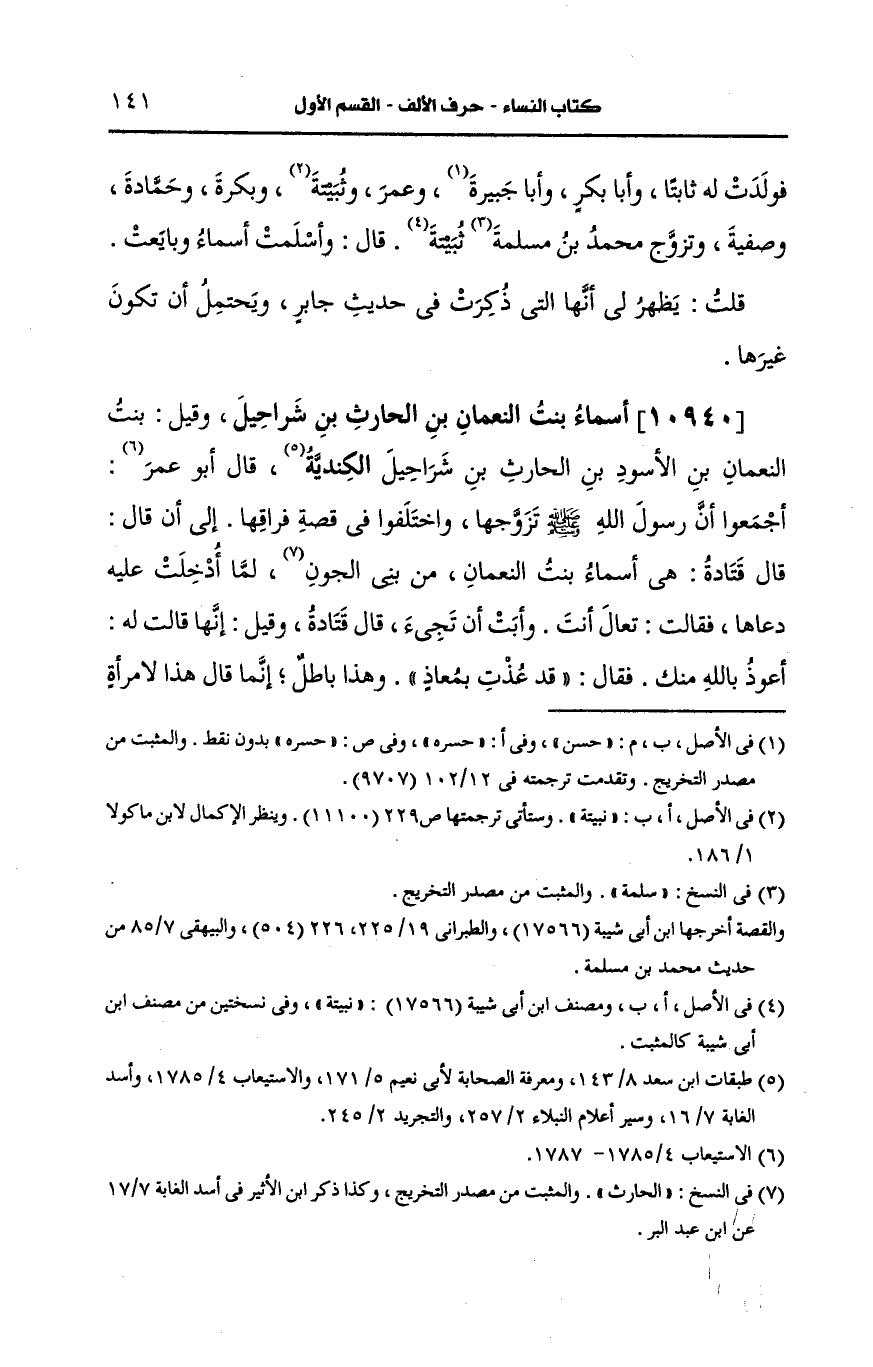 كتاب النساء - حرف الألف - القسم الأول ١٤١
فولَدَتْ له ثابتًا ، وأبا بكرٍ ، وأبا جَبيرةَ(١) ، وعمرَ ، وثُبَيْتةَ(٢) ، وبكرةَ ، وحَمَّادةَ ،
وصفيةَ ، وتزوَّج محمدُ بنُ مسلمةَ(٣) ثُبَيْتةَ(٤) . قال : وأسْلَمتْ أسماءُ وبايَعتْ .
قلتُ : يَظهرُ لى أنَّها التى ذُكِرَتْ فى حديثِ جابرٍ ، ويَحتمِلُ أن تكونَ
غيرَها .
[١٠٩٤٠] أسماءُ بنتُ النعمانِ بنِ الحارثِ بنِ شَراحيلَ ، وقيل : بنتُ
النعمانِ بنِ الأسودِ بنِ الحارثِ بنِ شَرَاحيلَ الكِنديَّةُ(٥) ، قال أبو عمرَ(٦) :
أجْمَعوا أنَّ رسولَ اللهِ ﷺ تَزَوَّجها ، واختَلَفوا فى قصةِ فراقِها . إلى أن قال :
قال قَتَادةُ : هى أسماءُ بنتُ النعمانِ ، من بنِى الجونِ(٧) ، لمَّا أُدْخِلَتْ عليه
دعاها ، فقالت : تعالَ أنتَ . وأبَتْ أن تَجِىءَ ، قال قَتَادةُ ، وقيل : إنَّها قالت له :
أعوذُ باللهِ منك . فقال : « قد عُذْتِ بمُعاذٍ » . وهذا باطلٌ ؛ إنَّما قال هذا لامرأةٍ
(١) فى الأصل ، ب ، م : « حسن » ، وفى أ : « حسره » ، وفى ص : « حسره » بدون نقط . والمثبت من
مصدر التخريج . وتقدمت ترجمته فى ١٠٢/١٢ (٩٧٠٧) .
(٢) فى الأصل ، أ ، ب : « نبيتة » . وستأتى ترجمتها ص٢٢٩ (١١١٠٠) . وينظر الإكمال لابن ماكولا
١/ ١٨٦.
(٣) فى النسخ : « سلمة » . والمثبت من مصدر التخريج .
والقصة أخرجها ابن أبى شيبة (١٧٥٦٦) ، والطبرانى ١٩/ ٢٢٥، ٢٢٦ (٥٠٤) ، والبيهقى ٨٥/٧ من
حديث محمد بن مسلمة .
(٤) فى الأصل ، أ ، ب ، ومصنف ابن أبى شيبة (١٧٥٦٦) : « نبيتة » ، وفى نسختين من مصنف ابن
أبى شيبة كالمثبت .
(٥) طبقات ابن سعد ٨/ ١٤٣، ومعرفة الصحابة لأبى نعيم ٥/ ١٧١، والاستيعاب ٤/ ١٧٨٥، وأسد
الغابة ٧/ ١٦، وسير أعلام النبلاء ٢/ ٢٥٧، والتجريد ٢/ ٢٤٥.
(٦) الاستيعاب ١٧٨٥/٤- ١٧٨٧.
(٧) فى النسخ : « الحارث » . والمثبت من مصدر التخريج ، وكذا ذكر ابن الأثير فى أسد الغابة ١٧/٧
عن ابن عبد البر .